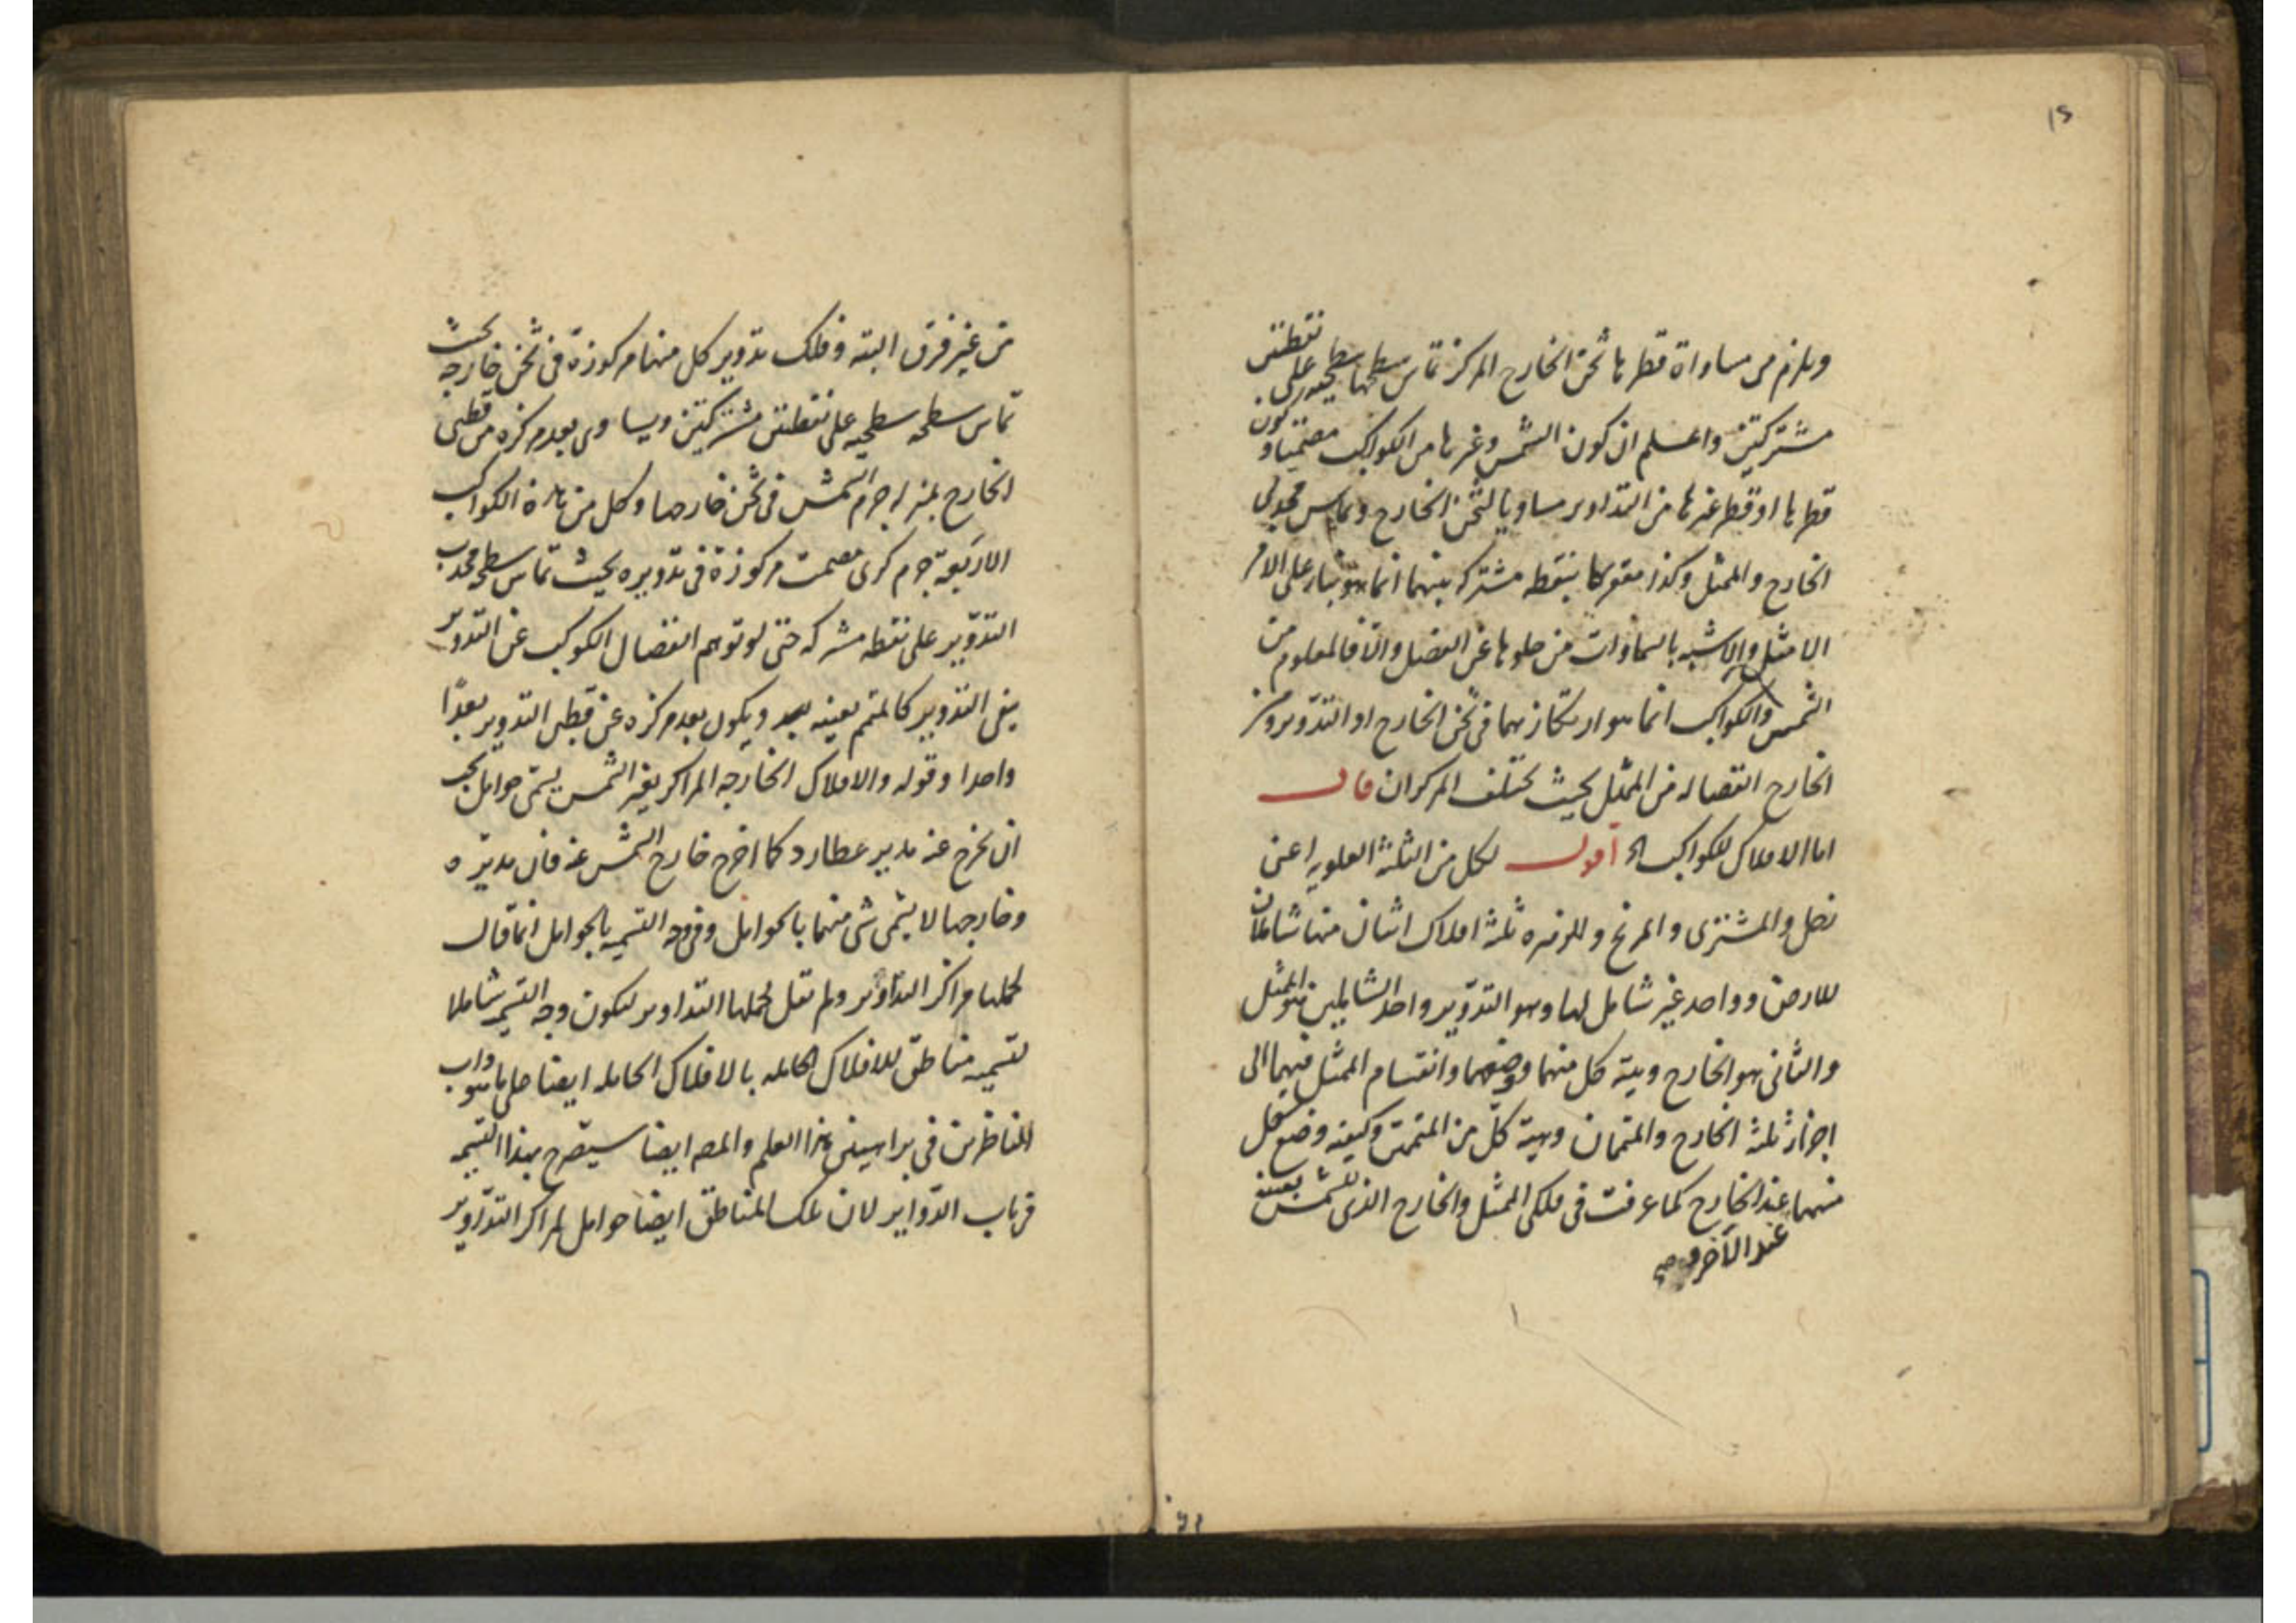 ١٥
ويلزم من مساواة قطرها ثخن الخارج المركز تماس سطحها سطحيه على نقطتين
مشتركتين واعلم ان كون الشمس وغيرها من الكواكب مصمتا وكون
قطرها او قطر غيرها من التداوير مساويا لثخن الخارج وتماس محدبى
الخارج والممثل وكذا مقعرهما بنقطه مشتركه بينهما انما هو بناء على الامر
الامثل والاشبه بالسماوات من خلوها عن الفضل والا فالمعلوم من
الشمس والكواكب انما هو ارتكازهما فى ثخن الخارج او التدوير ومن
الخارج انفصاله من الممثل بحيث يختلف المركزان قال
اما الافلاك للكواكب الخ اقول لكل من الثلثة العلويه اعنى
زحل والمشترى والمريخ وللزهره ثلثة افلاك اثنان منها شاملان
للارض وواحد غير شامل لها وهو التدوير واحد الشاملين هو الممثل
والثانى هو الخارج وهيئة كل منهما ووضعهما وانقسام الممثل منهما الى
اجزاء ثلثة الخارج والمتممان وهيئة كل من المتممين وكيفيه وضع كل
منهما عند الخارج كما عرفت فى فلكى الممثل والخارج الذى للشمس بعينه
عند الآخر
من غير فرق البته وفلك تدوير كل منها مركوزة فى ثخن خارجه بحيث
تماس سطحه سطحيه على نقطتين مشتركتين ويساوى بعد مركزه من قطبى
الخارج بمنزله جرم الشمس فى ثخن خارجها وكل من هذه الكواكب
الاربعة جرم كرى مصمت مركوزة فى تدويره بحيث تماس سطحه محدب
التدوير على نقطه مشتركه حتى لو توهم انفصال الكوكب عن التدوير
بقى التدوير كالمتمم بعينه ويكون بعد مركزه عن قطبى التدوير بعدًا
واحدا وقوله والافلاك الخارجه المراكز بغير الشمس يسمى حوامل يجب
ان يخرج عنه مدير عطارد كما اخرج خارج الشمس عنه فان مديره
وخارجها لا يسمى شى منهما بالحوامل وفى وجه التسميه بالحوامل انما قال
لحملها مراكز التداوير ولم يقل لحملها التداوير ليكون وجه التسميه شاملا
لتسميه مناطق للافلاك الحامله بالافلاك الحامله ايضا على ما هو داب
المناظرين فى براهينى هذا العلم والمصه ايضا سيصرح بهذا التسميه
فى باب الدواير لان تلك المناطق ايضا حوامل لمراكز التداوير